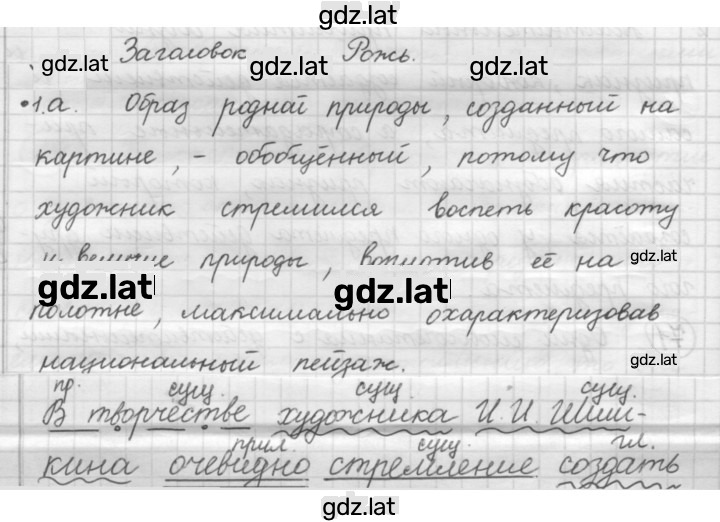 gdz.lat
Заголовок Рожь.
gdz.lat gdz.lat gdz.lat
1.а. Образ роднай природы, созданный на
картине, - обобщённый, потому что
художник стремился воспеть красоту
и величие природы, воплотив её на gdz.lat
gdz.lat gdz.lat
полотне, максимально охарактеризовав
национальный пейзаж. gdz.lat
пр. сущ. сущ. сущ.
В творчестве художника И.И. Шиш-
прил. сущ. гл.
кина очевидно стремление создать
gdz.lat